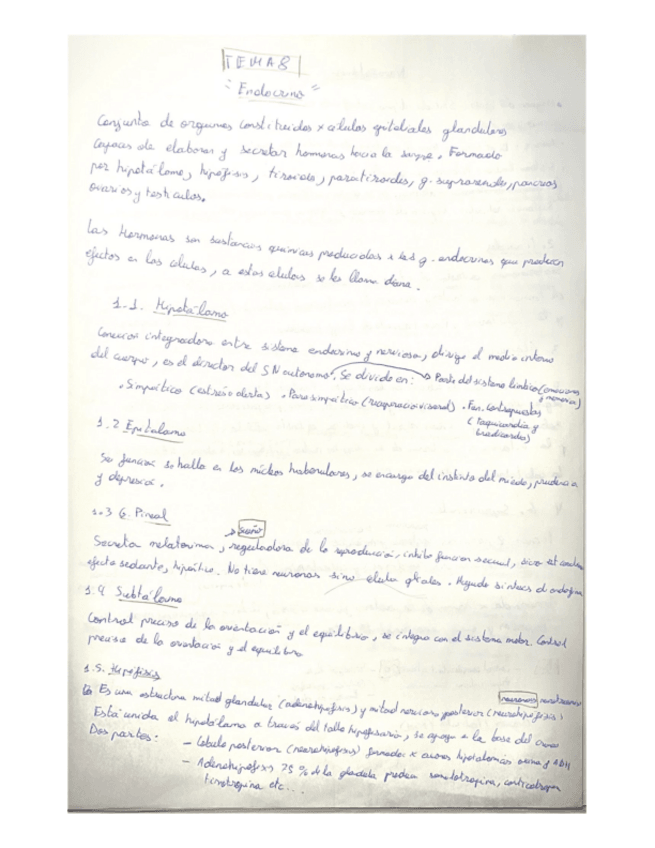 TEMA 8
"Endocrino"
Conjunto de organos constituidos x celulas epiteliales glandulares
capaces de elaborar y secretar hormonas hacia la sangre. Formado
por hipotálamo, hipofisis, tiroides, paratiroides, g. suprarenales, pancreas
ovarios y testiculos.
Las Hormonas son sustancias quimicas producidas x las g. endocrinas que producen
efectos en las celulas, a estas celulas se les llama diana.
1.1. Hipotálamo
Conexion integradora entre sistema endocrino y nervioso, dirige el medio interno
del cuerpo, es el director del SN autonomo. Se divide en: → Parte del sistema limbico (emociones y memoria)
. Simpatico (estres o alerta) . Parasimpatico (recuperacion visceral) . Fun. Contrapuestas
(Taquicardia y
bradicardia)
1.2 Epitalamo
Su funcion se halla en los nucleos habenulares, se encarga del instinto del miedo, prudencia
y depresion.
1.3 G. Pineal
→ sueño
Secreta melatonina, reguladora de la reproduccion, inhibe funcion sexual,
efecto sedante, hipnotico. No tiene neuronas sino celulas gliales. Ayuda sintesis de endorfinas
1.4 Subtálamo
Control preciso de la orientacion y el equilibrio, se integra con el sistema motor. Control
preciso de la orientacion y el equilibrio
1.5. Hipofisis
neuronas
Es una estructura mitad glandular (adenohipofisis) y mitad nerviosa posterior (neurohipofisis)
Está unida al hipotálamo a través del tallo hipofisario, se apoya en la base del craneo
Dos partes: - Lobulo posterior (neurohipofisis) formada x axones hipotalamicos ADH
- Adenohipofisis 75% de la glandula producen somatotropina, corticotropina
tirotropina etc...